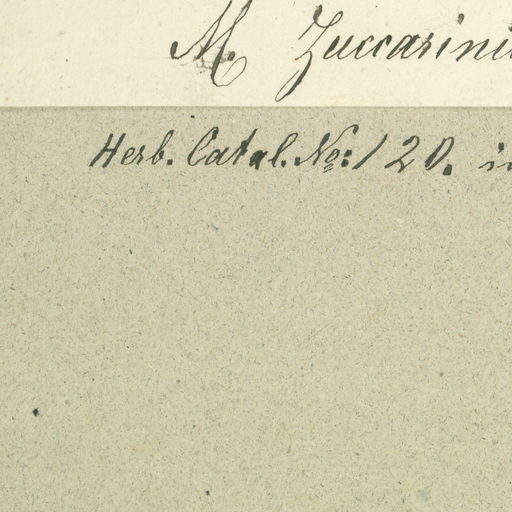 M. Zuccarini
Herb. Catal. No: 120. in